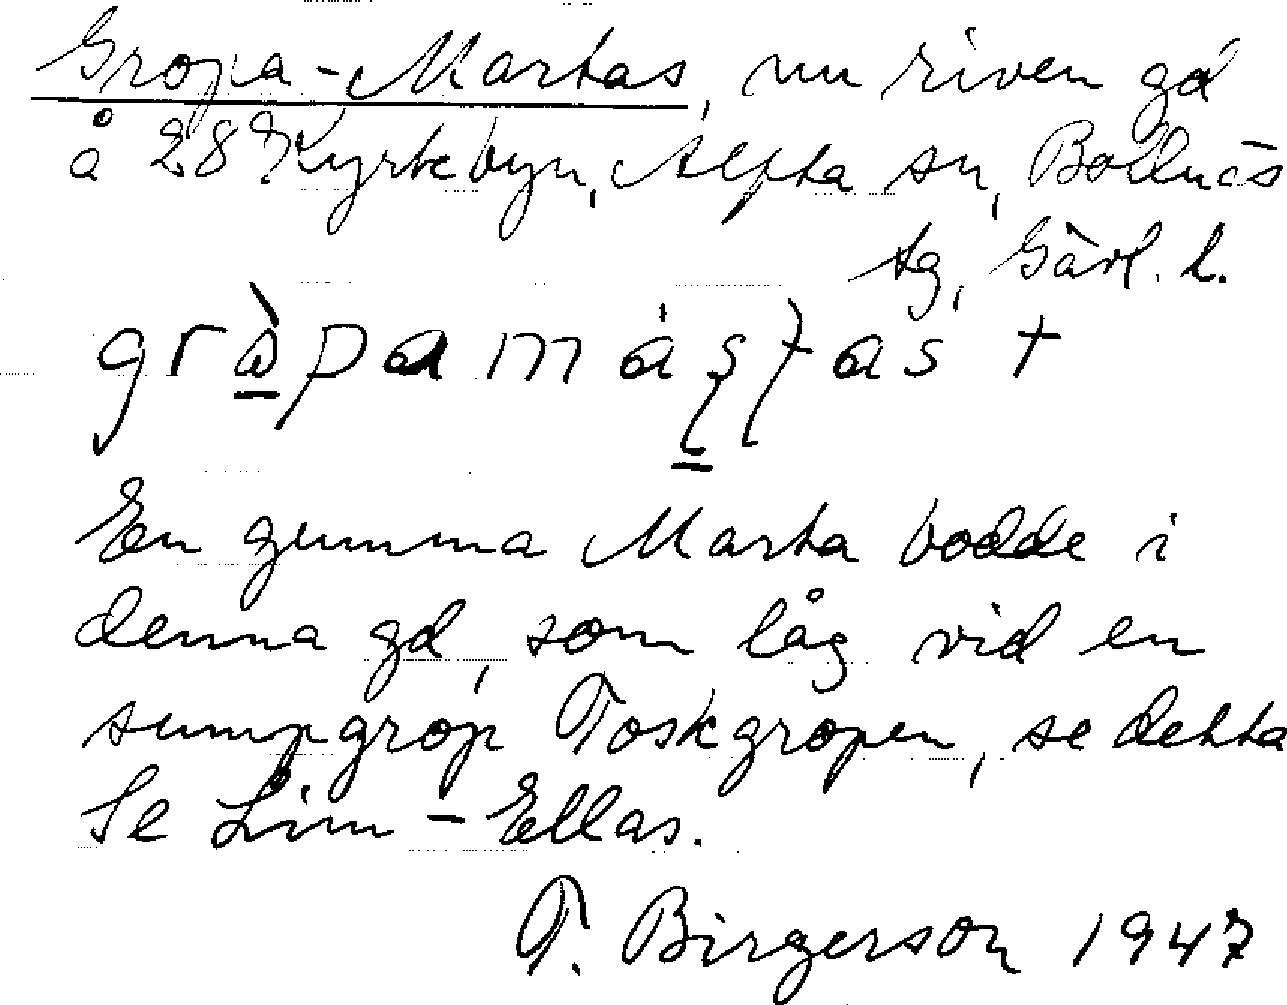 Gropa-Martas, nu riven gd
å 28 Kyrkbyn, Alfta sn, Bollnäs
tg, Gävl. l.
En gumma Marta bodde i
denna gd, som låg vid en
sumpgrop Toskgropen, se detta
Se Lim-Ellas.
T. Birgerson 1947